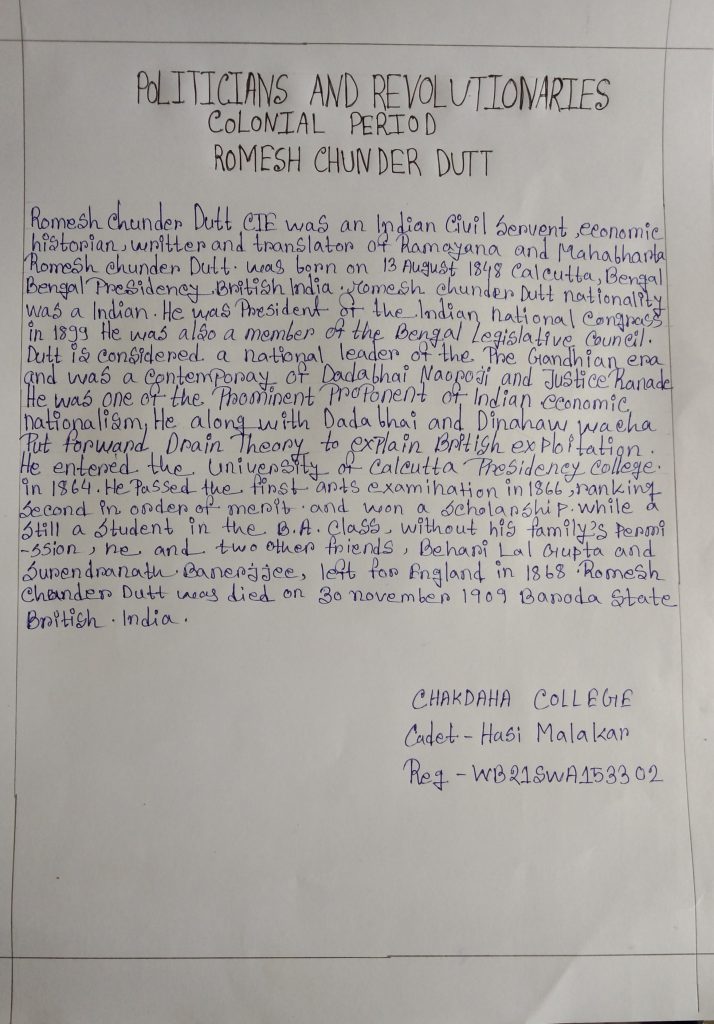 POLITICIANS AND REVOLUTIONARIES
COLONIAL PERIOD
ROMESH CHUNDER DUTT
Romesh Chunder Dutt CIE was an Indian Civil Servent, economic
historian, writter and translator of Ramayana and Mahabharta
Romesh chunder Dutt. was born on 13 August 1848 Calcutta, Bengal
Bengal Presidency, British India. Romesh chunder Dutt nationality
was a Indian. He was President of the Indian national Congress
in 1899 He was also a member of the Bengal Legislative Council.
Dutt is considered a national leader of the Pre Gandhian era
and was a contemporay of Dadabhai Naoroji and Justice Ranade
He was one of the Prominent Proponent of Indian economic
nationalism, He along with Dadabhai and Dinahaw wacha
Put forward Drain Theory to explain British exploitation.
He entered the University of Calcutta Presidency College.
in 1864. He Passed the first arts examination in 1866, ranking
Second in order of merit. and won a Scholarship. while a
Still a Student in the B.A. Class, without his family's Permi
-ssion, he and two other friends, Behari Lal Gupta and
Surendranath Banerjjee, left for England in 1868. Romesh
Chander Dutt was died on 30 november 1909 Baroda State
British. India.
CHAKDAHA COLLEGE
Cadet - Hasi Malakar
Reg - WB21SWA153302